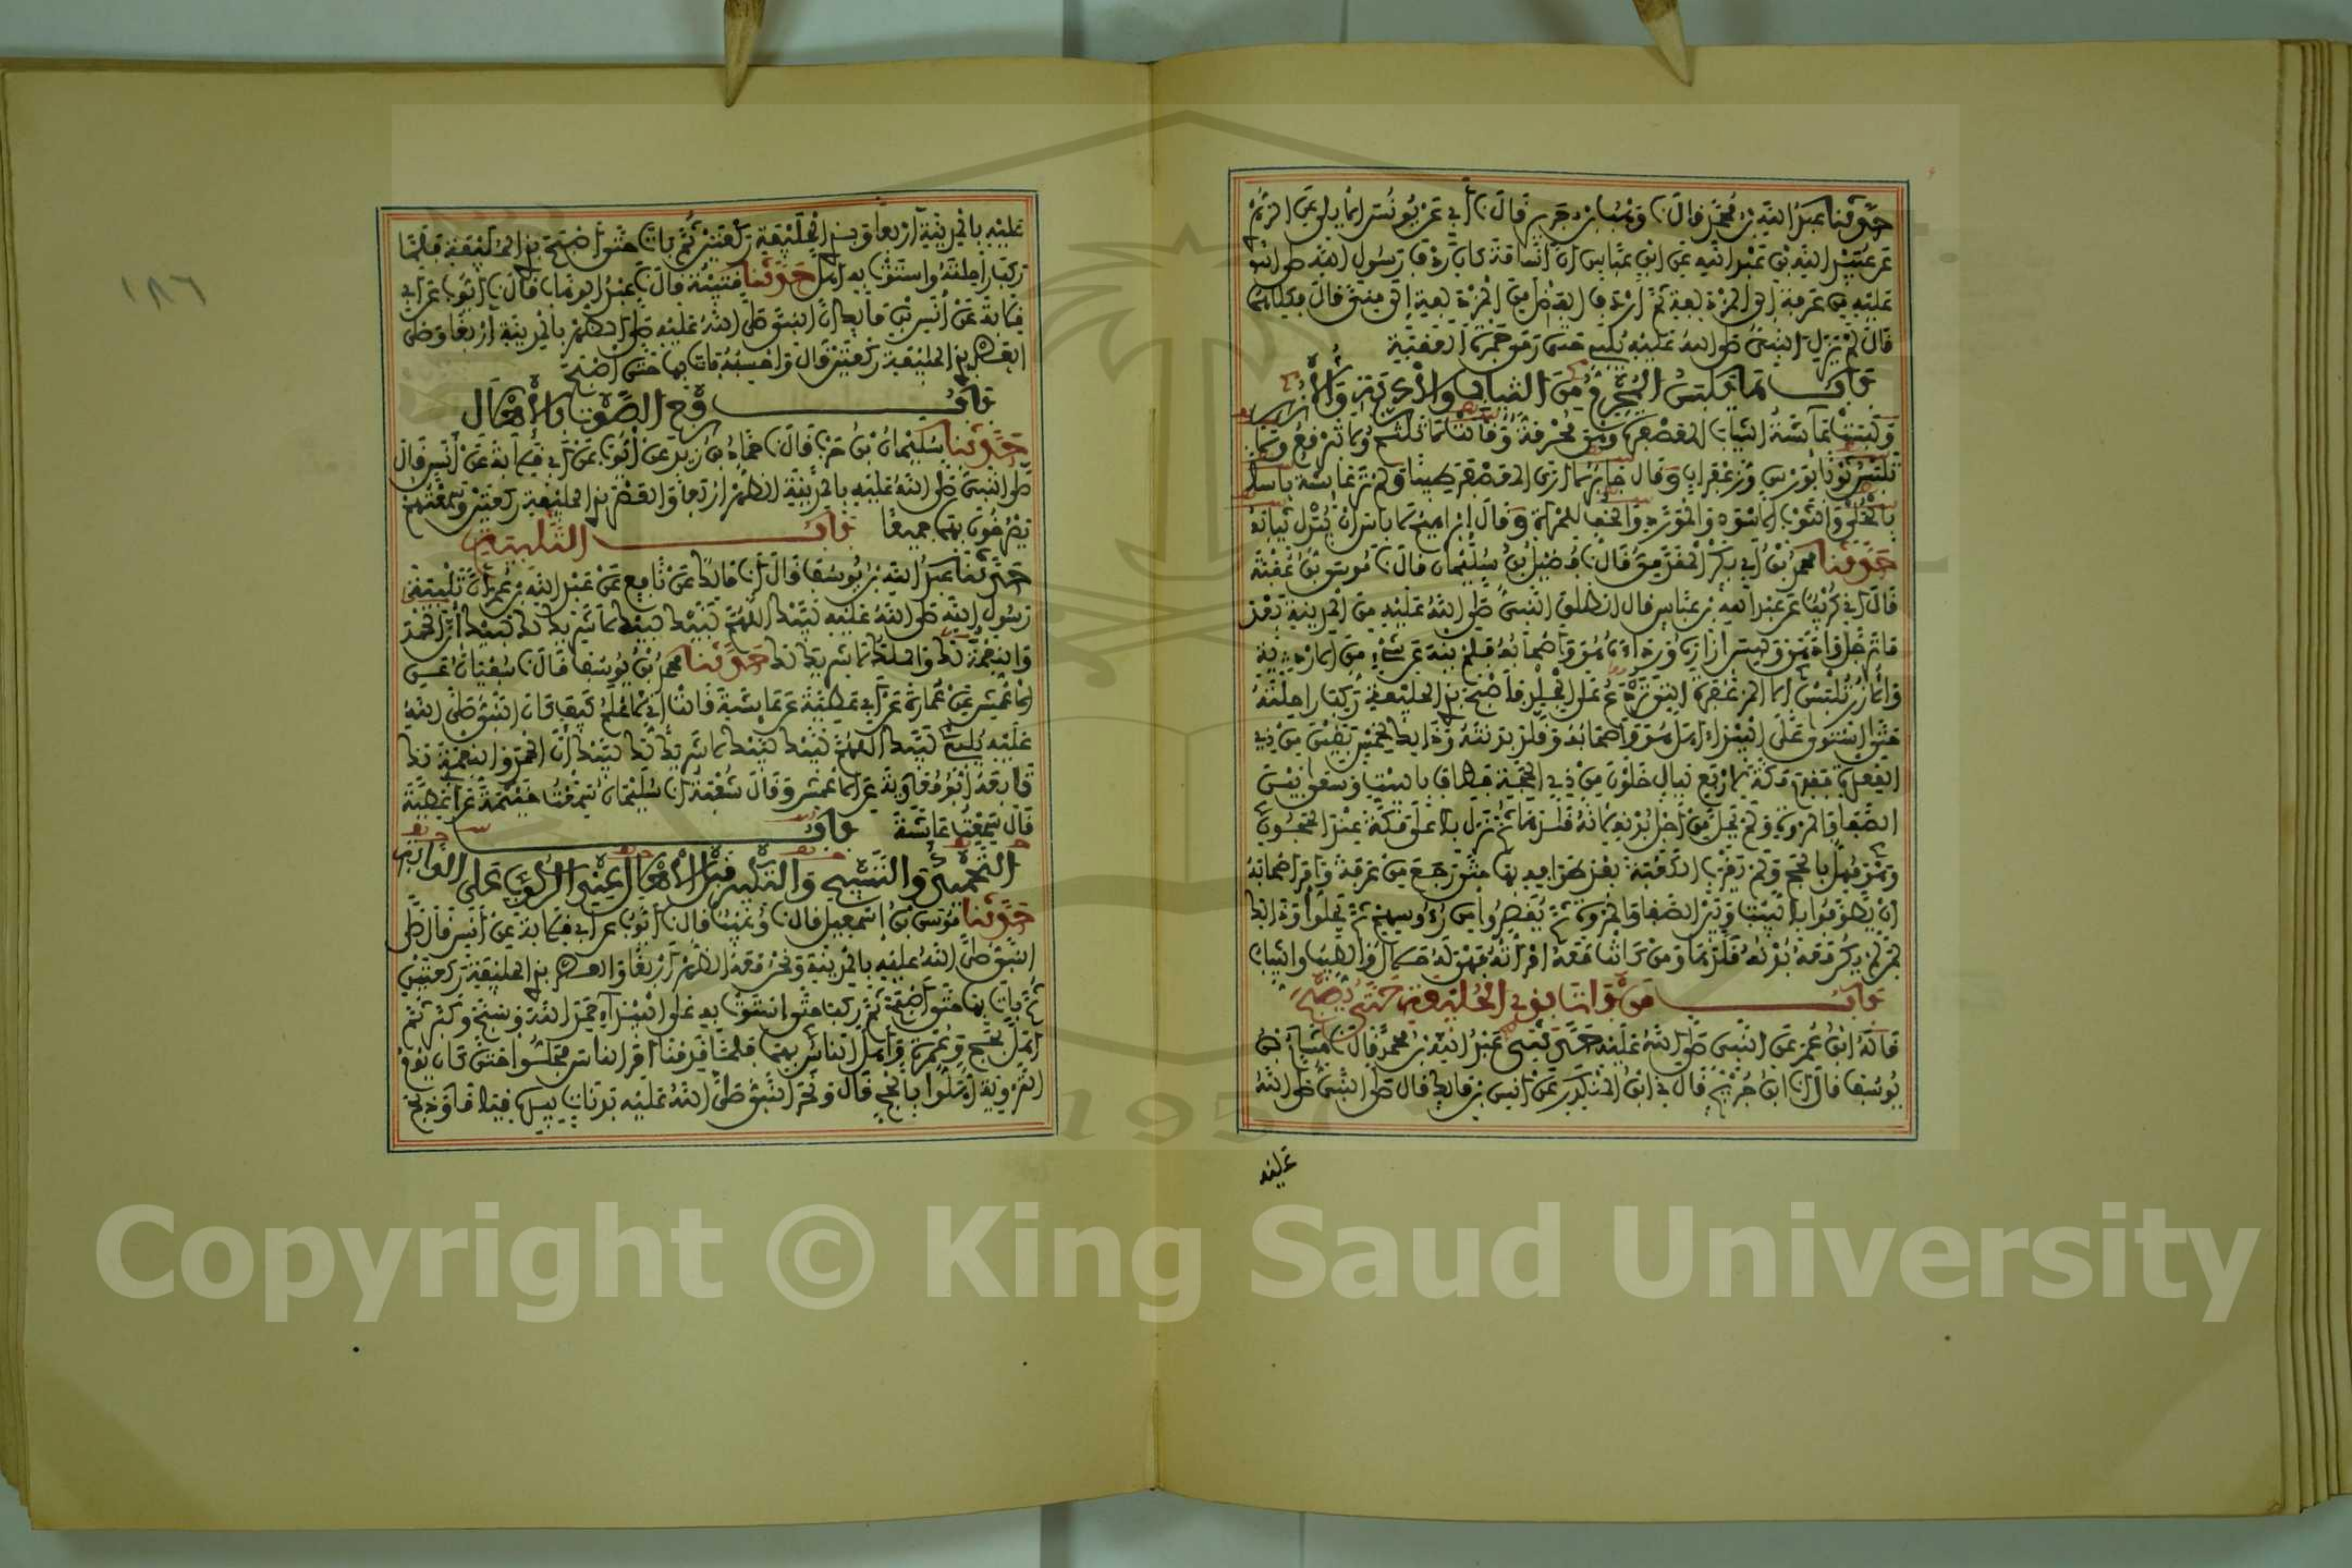 حدثنا عبد الله بن محمد قال نا وهب بن جرير قال نا أبي عن يونس الأيلي عن الزهري
عن عبيد الله بن عبد الله عن ابن عباس أن أسامة كان ردف رسول الله صلى الله
عليه من عرفة إلى المزدلفة ثم أردف الفضل من المزدلفة إلى منى قال فكلاهما
قال لم يزل النبي صلى الله عليه يلبي حتى رمى جمرة العقبة
باب ما يلبس المحرم من الثياب والأردية والأزر
ولبست عائشة الثياب المعصفرة وهي محرمة وقالت لا تلثم ولا تتبرقع ولا
تلبس ثوبا بورس وزعفران وقال جابر لا أرى المعصفر طيبا ولم تر عائشة بأسا
بالحلي والثوب الأسود والمورد والخف للمرأة وقال إبراهيم لا بأس أن يبدل ثيابه
حدثنا محمد بن أبي بكر المقدمي قال نا فضيل بن سليمان قال نا موسى بن عقبة
قال أني كريب عن عبد الله بن عباس قال انطلق النبي صلى الله عليه من المدينة بعد
ما ترجل وادهن ولبس إزاره ورداءه هو وأصحابه فلم ينه عن شيء من الأردية
والأزر تلبس إلا المزعفرة التي تردع على الجلد فأصبح بذي الحليفة ركب راحلته
حتى استوى على البيداء أهل هو وأصحابه وقلد بدنته وذلك لخمس بقين من ذي
القعدة فقدم مكة لأربع ليال خلون من ذي الحجة فطاف بالبيت وسعى بين
الصفا والمروة ولم يحل من أجل بدنه لأنه قلدها ثم نزل بأعلى مكة عند الحجون
وهو مهل بالحج ولم يقرب الكعبة بعد طوافه بها حتى رجع من عرفة وأمر أصحابه
أن يطوفوا بالبيت وبين الصفا والمروة ثم يقصروا من رءوسهم ثم يحلوا وذلك
لمن لم يكن معه بدنة قلدها ومن كانت معه امرأته فهي له حلال والطيب والثياب
باب من بات بذي الحليفة حتى يصبح
قاله ابن عمر عن النبي صلى الله عليه حدثني عبد الله بن محمد قال نا هشام بن
يوسف قال أنا ابن جريج قال نا ابن المنكدر عن أنس بن مالك قال صلى النبي صلى الله
عليه
١٨٦
عليه بالمدينة أربعا وبذي الحليفة ركعتين ثم بات حتى أصبح بذي الحليفة فلما
ركب راحلته واستوت به أهل حدثنا قتيبة قال نا عبد الوهاب قال نا أيوب عن أبي
قلابة عن أنس بن مالك أن النبي صلى الله عليه صلى الظهر بالمدينة أربعا وصلى
العصر بذي الحليفة ركعتين قال وأحسبه بات بها حتى أصبح
باب رفع الصوت بالإهلال
حدثنا سليمان بن حرب قال نا حماد بن زيد عن أيوب عن أبي قلابة عن أنس قال
صلى النبي صلى الله عليه بالمدينة الظهر أربعا والعصر بذي الحليفة ركعتين وسمعتهم
يصرخون بهما جميعا باب التلبية
حدثنا عبد الله بن يوسف قال أنا مالك عن نافع عن عبد الله بن عمر أن تلبية
رسول الله صلى الله عليه لبيك اللهم لبيك لبيك لا شريك لك لبيك إن الحمد
والنعمة لك والملك لا شريك لك حدثنا محمد بن يوسف قال نا سفيان عن
الأعمش عن عمارة عن أبي عطية عن عائشة قالت إني لأعلم كيف كان النبي صلى الله
عليه يلبي لبيك اللهم لبيك لبيك لا شريك لك لبيك إن الحمد والنعمة لك
تابعه أبو معاوية عن الأعمش وقال شعبة أنا سليمان سمعت خيثمة عن أبي عطية
قال سمعت عائشة باب
التحميد والتسبيح والتكبير قبل الإهلال عند الركوب على الدابة
حدثنا موسى بن إسمعيل قال نا وهيب قال نا أيوب عن أبي قلابة عن أنس قال صلى
النبي صلى الله عليه بالمدينة ونحن معه الظهر أربعا والعصر بذي الحليفة ركعتين
ثم بات بها حتى أصبح ثم ركب حتى استوت به على البيداء حمد الله وسبح وكبر ثم
أهل بحج وعمرة وأهل الناس بهما فلما قدمنا أمر الناس فحلوا حتى كان يوم
التروية أهلوا بالحج قال ونحر النبي صلى الله عليه بدنات بيده قياما وذبح
Copyright © King Saud University
1957